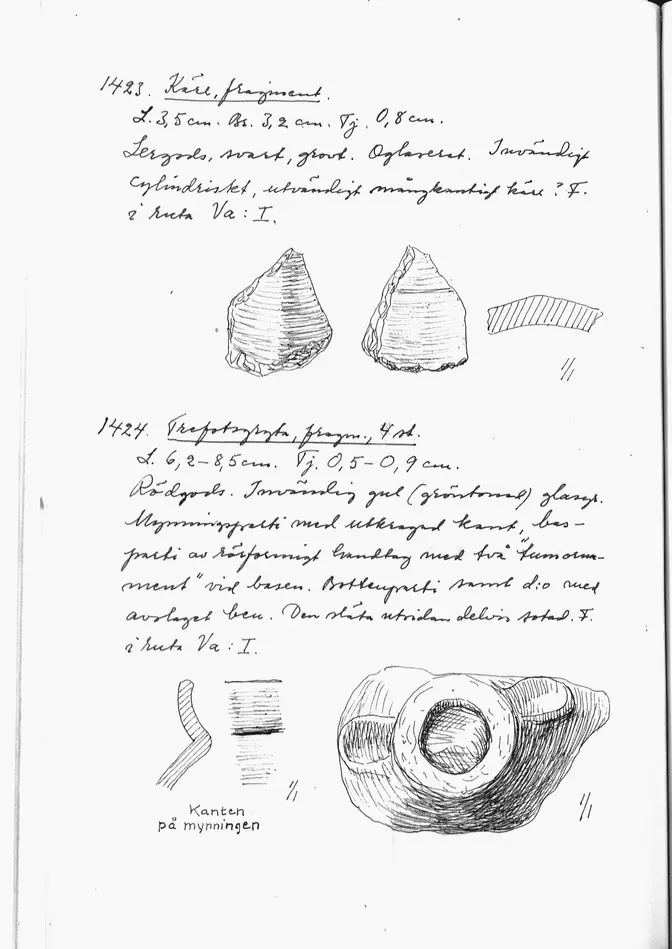 1423. Kärl, fragment.
L. 3,5 cm. Br. 3,2 cm. Tj. 0,8 cm.
Lergods, svart, grovt. Oglaserat. Invändigt
cylindriskt, utvändigt mångkantigt kärl? F.
i ruta Va : I.
1/1
1424. Trefotsgryta, fragm., 4 st.
L. 6,2–8,5 cm. Tj. 0,5–0,9 cm.
Rödgods. Invändig gul (gröntonad) glasyr.
Mynningsparti med utkragad kant, bas-
parti av rörformigt handtag med två "tumorna-
ment" vid basen. Bottenparti samt d:o med
avslaget ben. Den släta utsidan delvis sotad. F.
i ruta Va : I.
1/1
Kanten
på mynningen
1/1